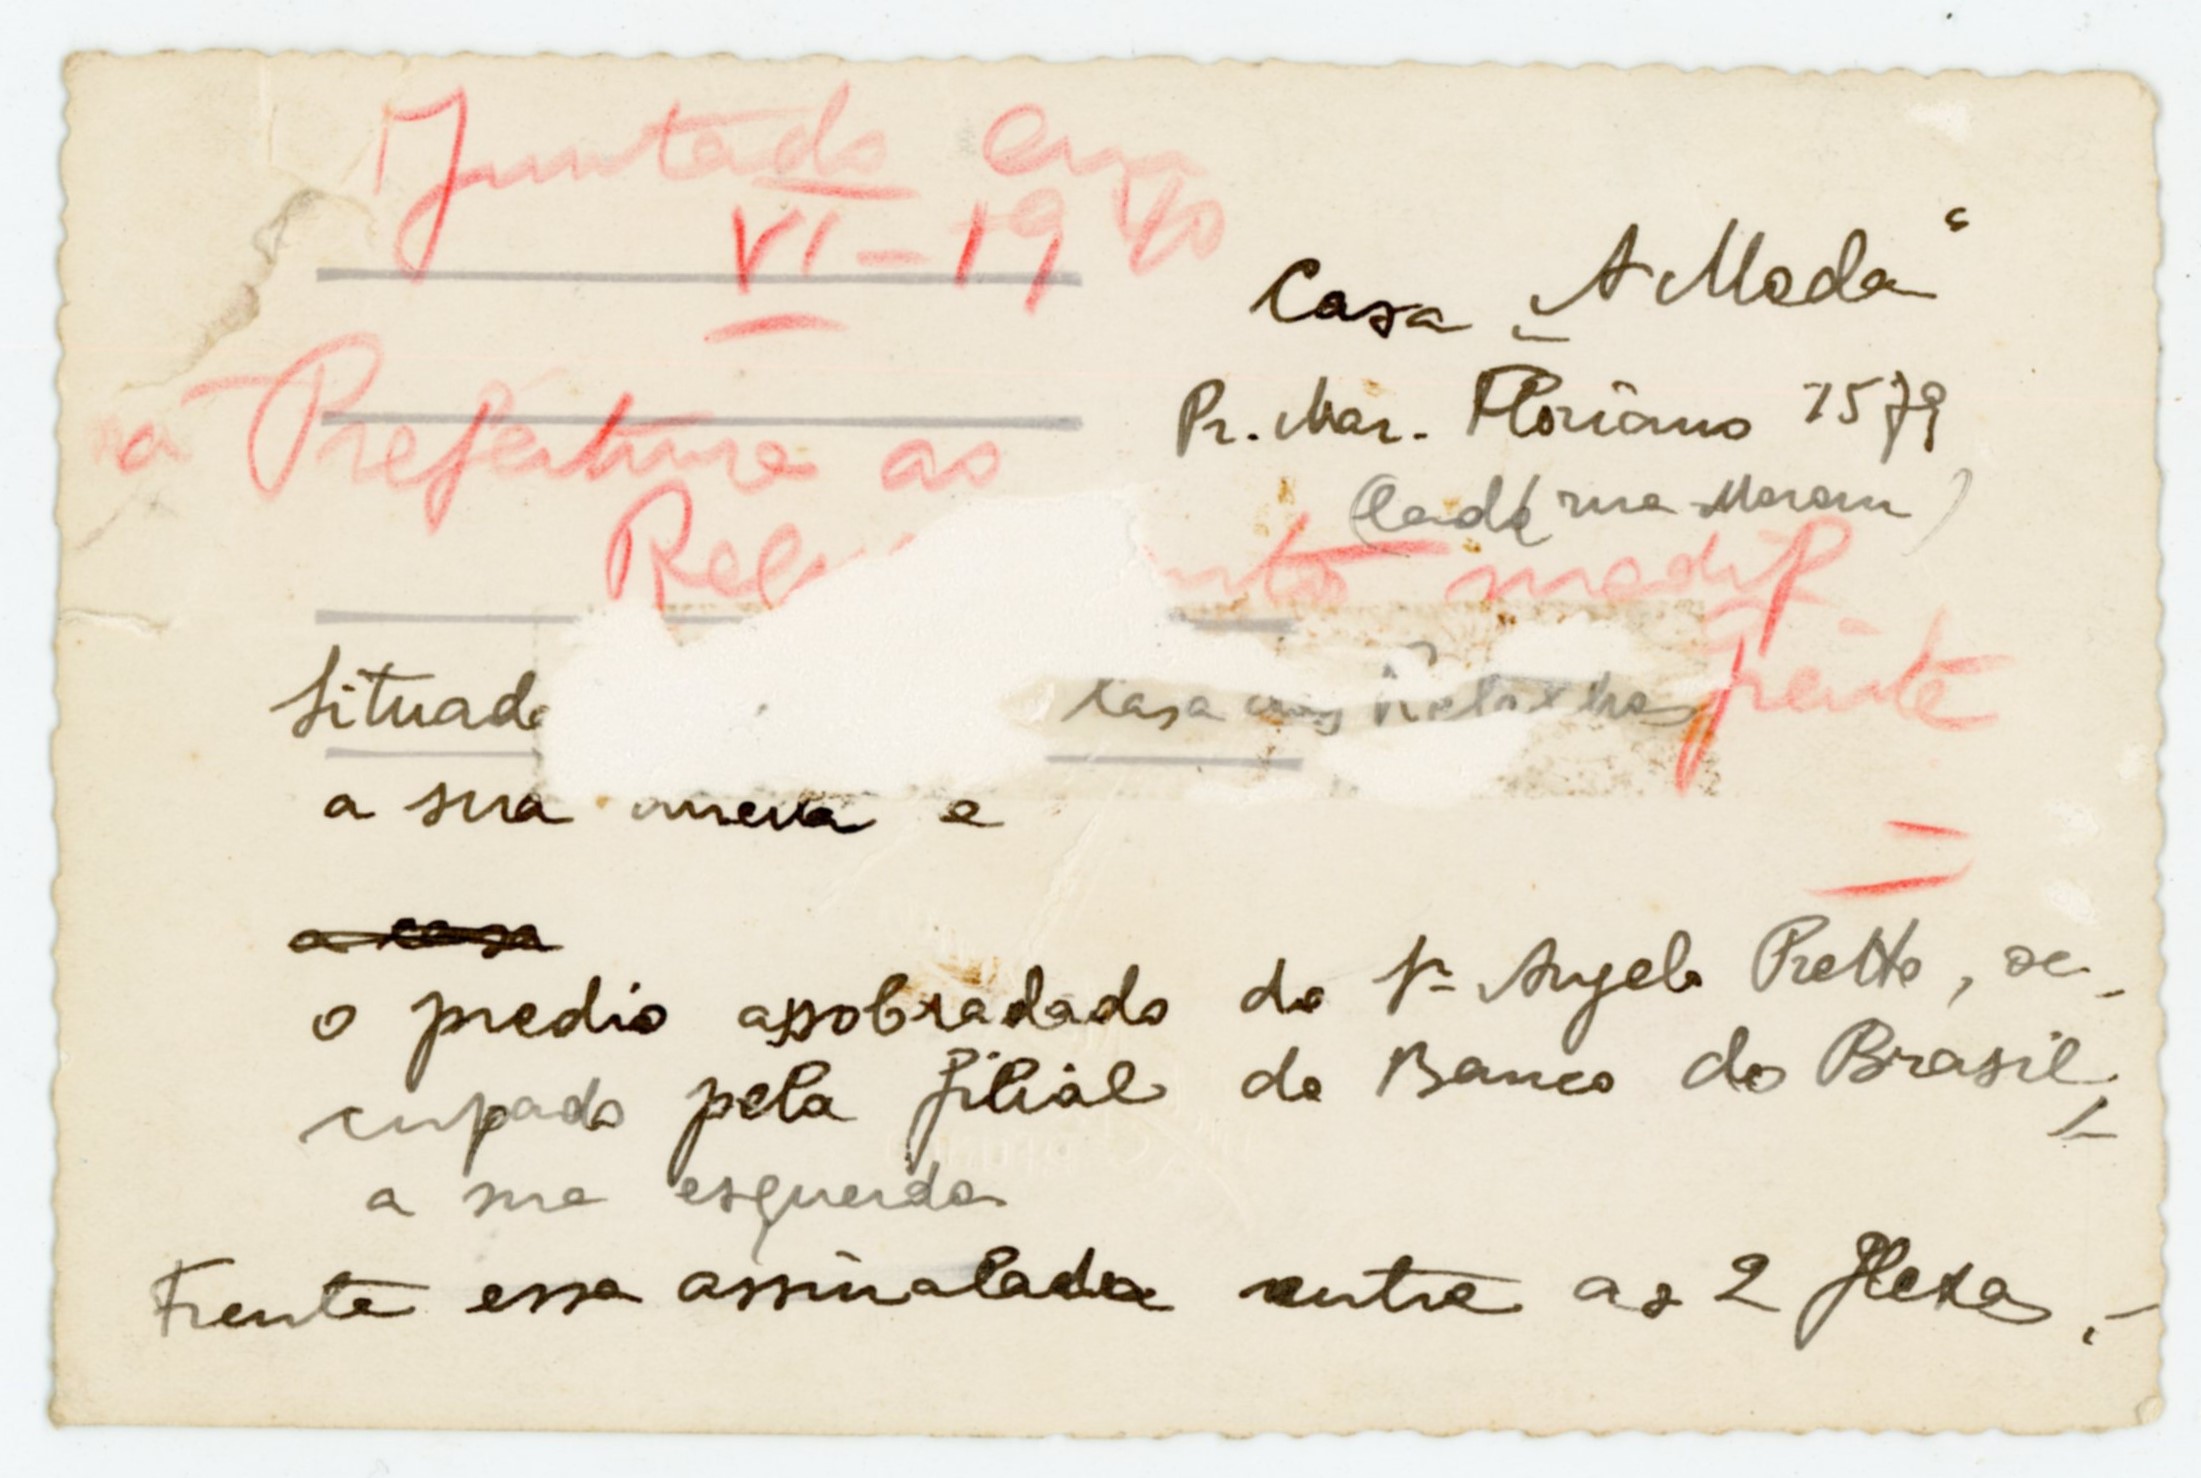 Juntado em
VI-1940
na Prefeitura ao
modif
frente
Casa „A Moda“
Pr. Mar. Floriano 1579
rua
Situado
casa
a sua e
a casa
o predio assobradado do Sr Angelo Pretto, oc-
cupado pela filial do Banco do Brasil,
a sua esquerda
Frente essa assinalada entre as 2 flexas.-